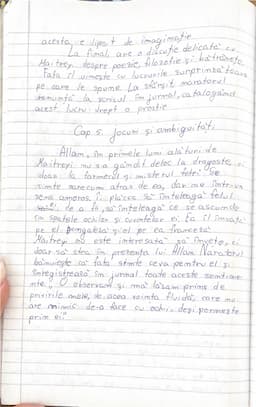 acesta, e lipsit de imaginație.
La final, are o discuție delicată cu
Maitrey despre poezie, filozofie și bătrânețe.
Fata îl uimește cu lucrurile surprinzătoare
pe care le spune. La sfârșit naratorul
renunță la scrisul în jurnal, catalogând
acest lucru drept o prostie
Cap 5. Jocuri și ambiguități
Allan, în primele luni alături de
Maitreyi nu s-a gândit deloc la dragoste, ci
doar la farmecul și misterul fetei. Se
simte oarecum atras de ea, dar nu într-un
sens amoros, îi plăcea să înțeleagă felul
de a fi, să înțeleagă ce se ascunde
în spatele ochilor și cuvintelor ei. Ea îl învață
pe el bengaleza și el pe ea franceza.
Maitreyi nu este interesată să învețe, ci
doar să stea în prezența lui Allan. Naratorul
bănuiește că fata simte ceva pentru el și
înregistrează în jurnal toate aceste sentimente
"O observam și mă lăsam prins de
privirile mele, de acea voință fluidă, care nu
are nimic de-a face cu ochii, deși pornește
prin ei"